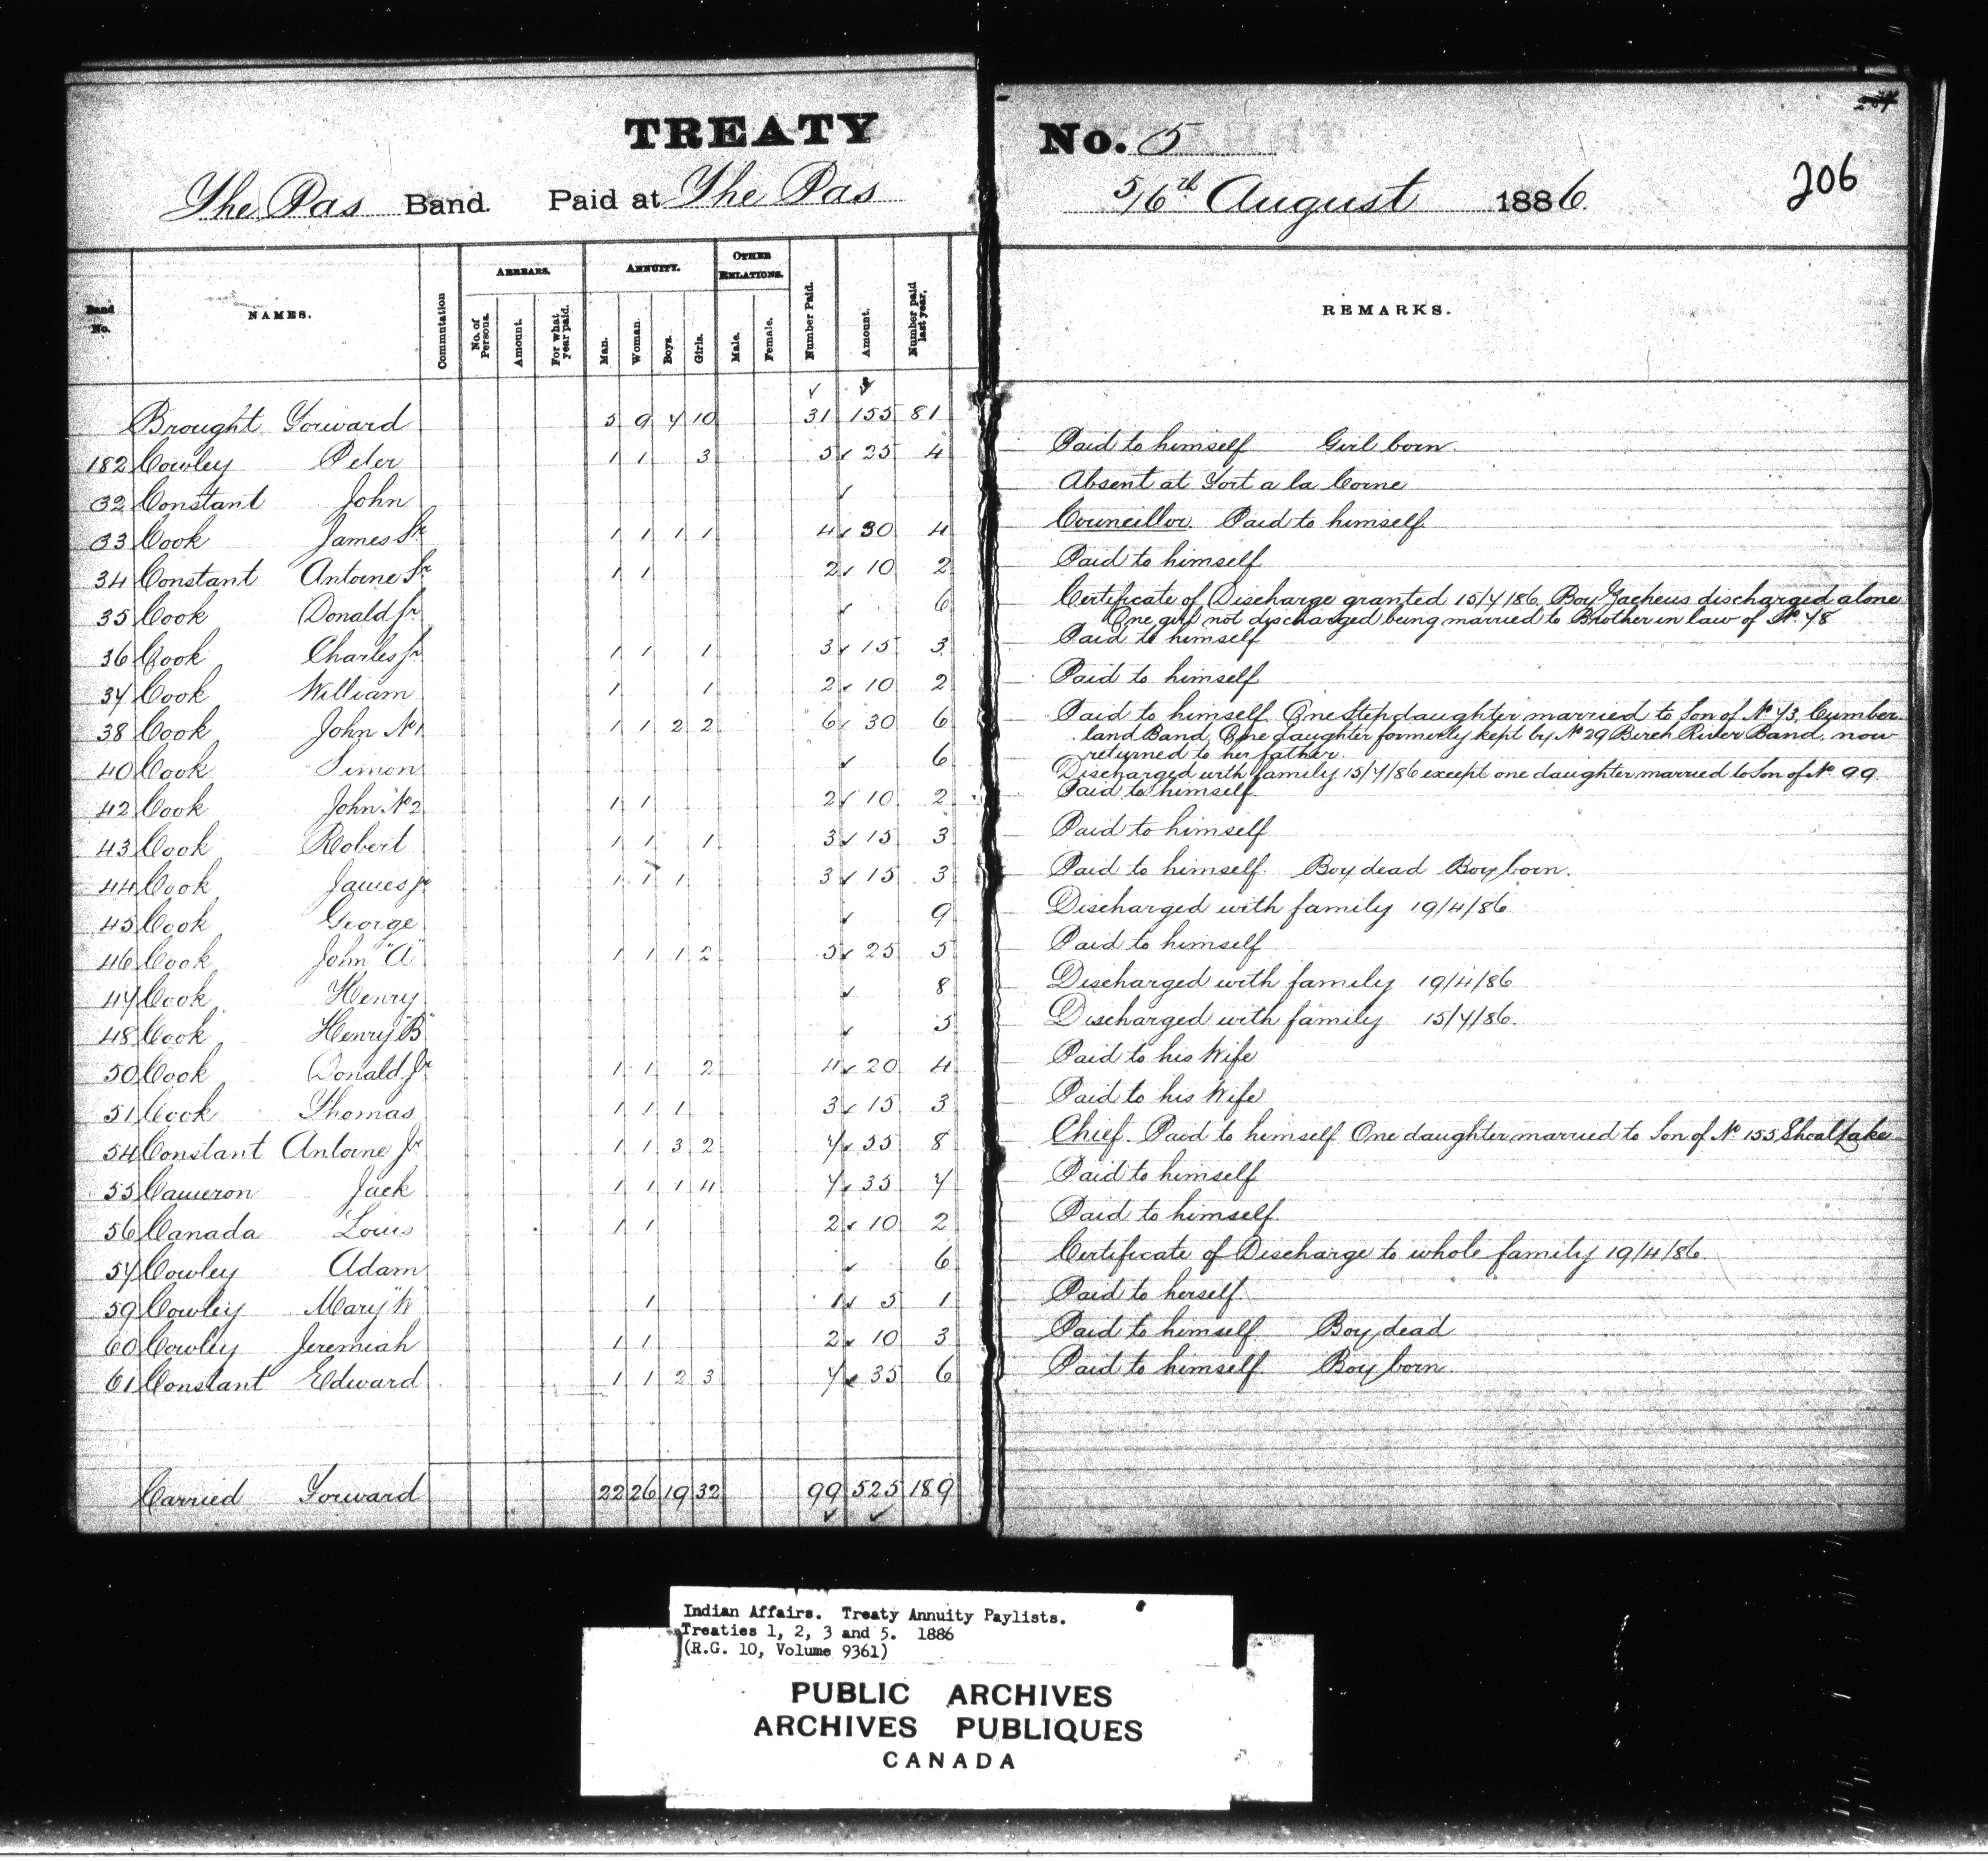 TREATY No. 5
206
The Pas Band. Paid at The Pas 5/6th August 1886.
Band No. NAMES. Commutation ARREARS. No. of Persons. Amount. For what year paid. ANNUITY. Man. Woman. Boys. Girls. OTHER RELATIONS. Male. Female. Number Paid. Amount. Number paid last year. REMARKS.
Brought Forward 5 9 7 10 31 155 81
182 Cowley Peter 1 1 3 5 25 4 Paid to himself Girl born.
32 Constant John Absent at Fort a la Corne
33 Cook James Sr 1 1 1 1 4 30 4 Councillor. Paid to himself
34 Constant Antoine Sr 1 1 2 10 2 Paid to himself
35 Cook Donald Sr 6 Certificate of Discharge granted 15/7/86. Boy Zacheus discharged alone
One girl not discharged being married to Brother in law of No 78
36 Cook Charles Jr 1 1 1 3 15 3 Paid to himself
37 Cook William 1 1 2 10 2 Paid to himself
38 Cook John No 1 1 1 2 2 6 30 6 Paid to himself. One Stepdaughter married to Son of No 73, Cumber
land Band, One daughter formerly kept by No 29 Birch River Band, now
returned to her father.
40 Cook Simon 6 Discharged with family 15/7/86 except one daughter married to Son of No 99.
42 Cook John No 2 1 1 2 10 2 Paid to himself
43 Cook Robert 1 1 1 3 15 3 Paid to himself
44 Cook James Jr 1 1 1 3 15 3 Paid to himself. Boy dead Boy born.
45 Cook George 9 Discharged with family 19/4/86
46 Cook John "A" 1 1 1 2 5 25 5 Paid to himself
47 Cook Henry 8 Discharged with family 19/4/86
48 Cook Henry "B" 5 Discharged with family 15/7/86.
50 Cook Donald Jr 1 1 2 4 20 4 Paid to his Wife
51 Cook Thomas 1 1 1 3 15 3 Paid to his Wife
54 Constant Antoine Jr 1 1 3 2 7 55 8 Chief. Paid to himself One daughter married to Son of No 155, Shoal Lake
55 Cameron Jack 1 1 1 4 7 35 7 Paid to himself
56 Canada Louis 1 1 2 10 2 Paid to himself.
57 Cowley Adam 6 Certificate of Discharge to whole family 19/4/86
59 Cowley Mary "W" 1 1 5 1 Paid to herself
60 Cowley Jeremiah 1 1 2 10 3 Paid to himself Boy dead
61 Constant Edward 1 1 2 3 7 35 6 Paid to himself Boy born.
Carried Forward 22 26 19 32 99 525 189
Indian Affairs. Treaty Annuity Paylists.
Treaties 1, 2, 3 and 5. 1886
(R.G. 10, Volume 9361)
PUBLIC ARCHIVES
ARCHIVES PUBLIQUES
CANADA